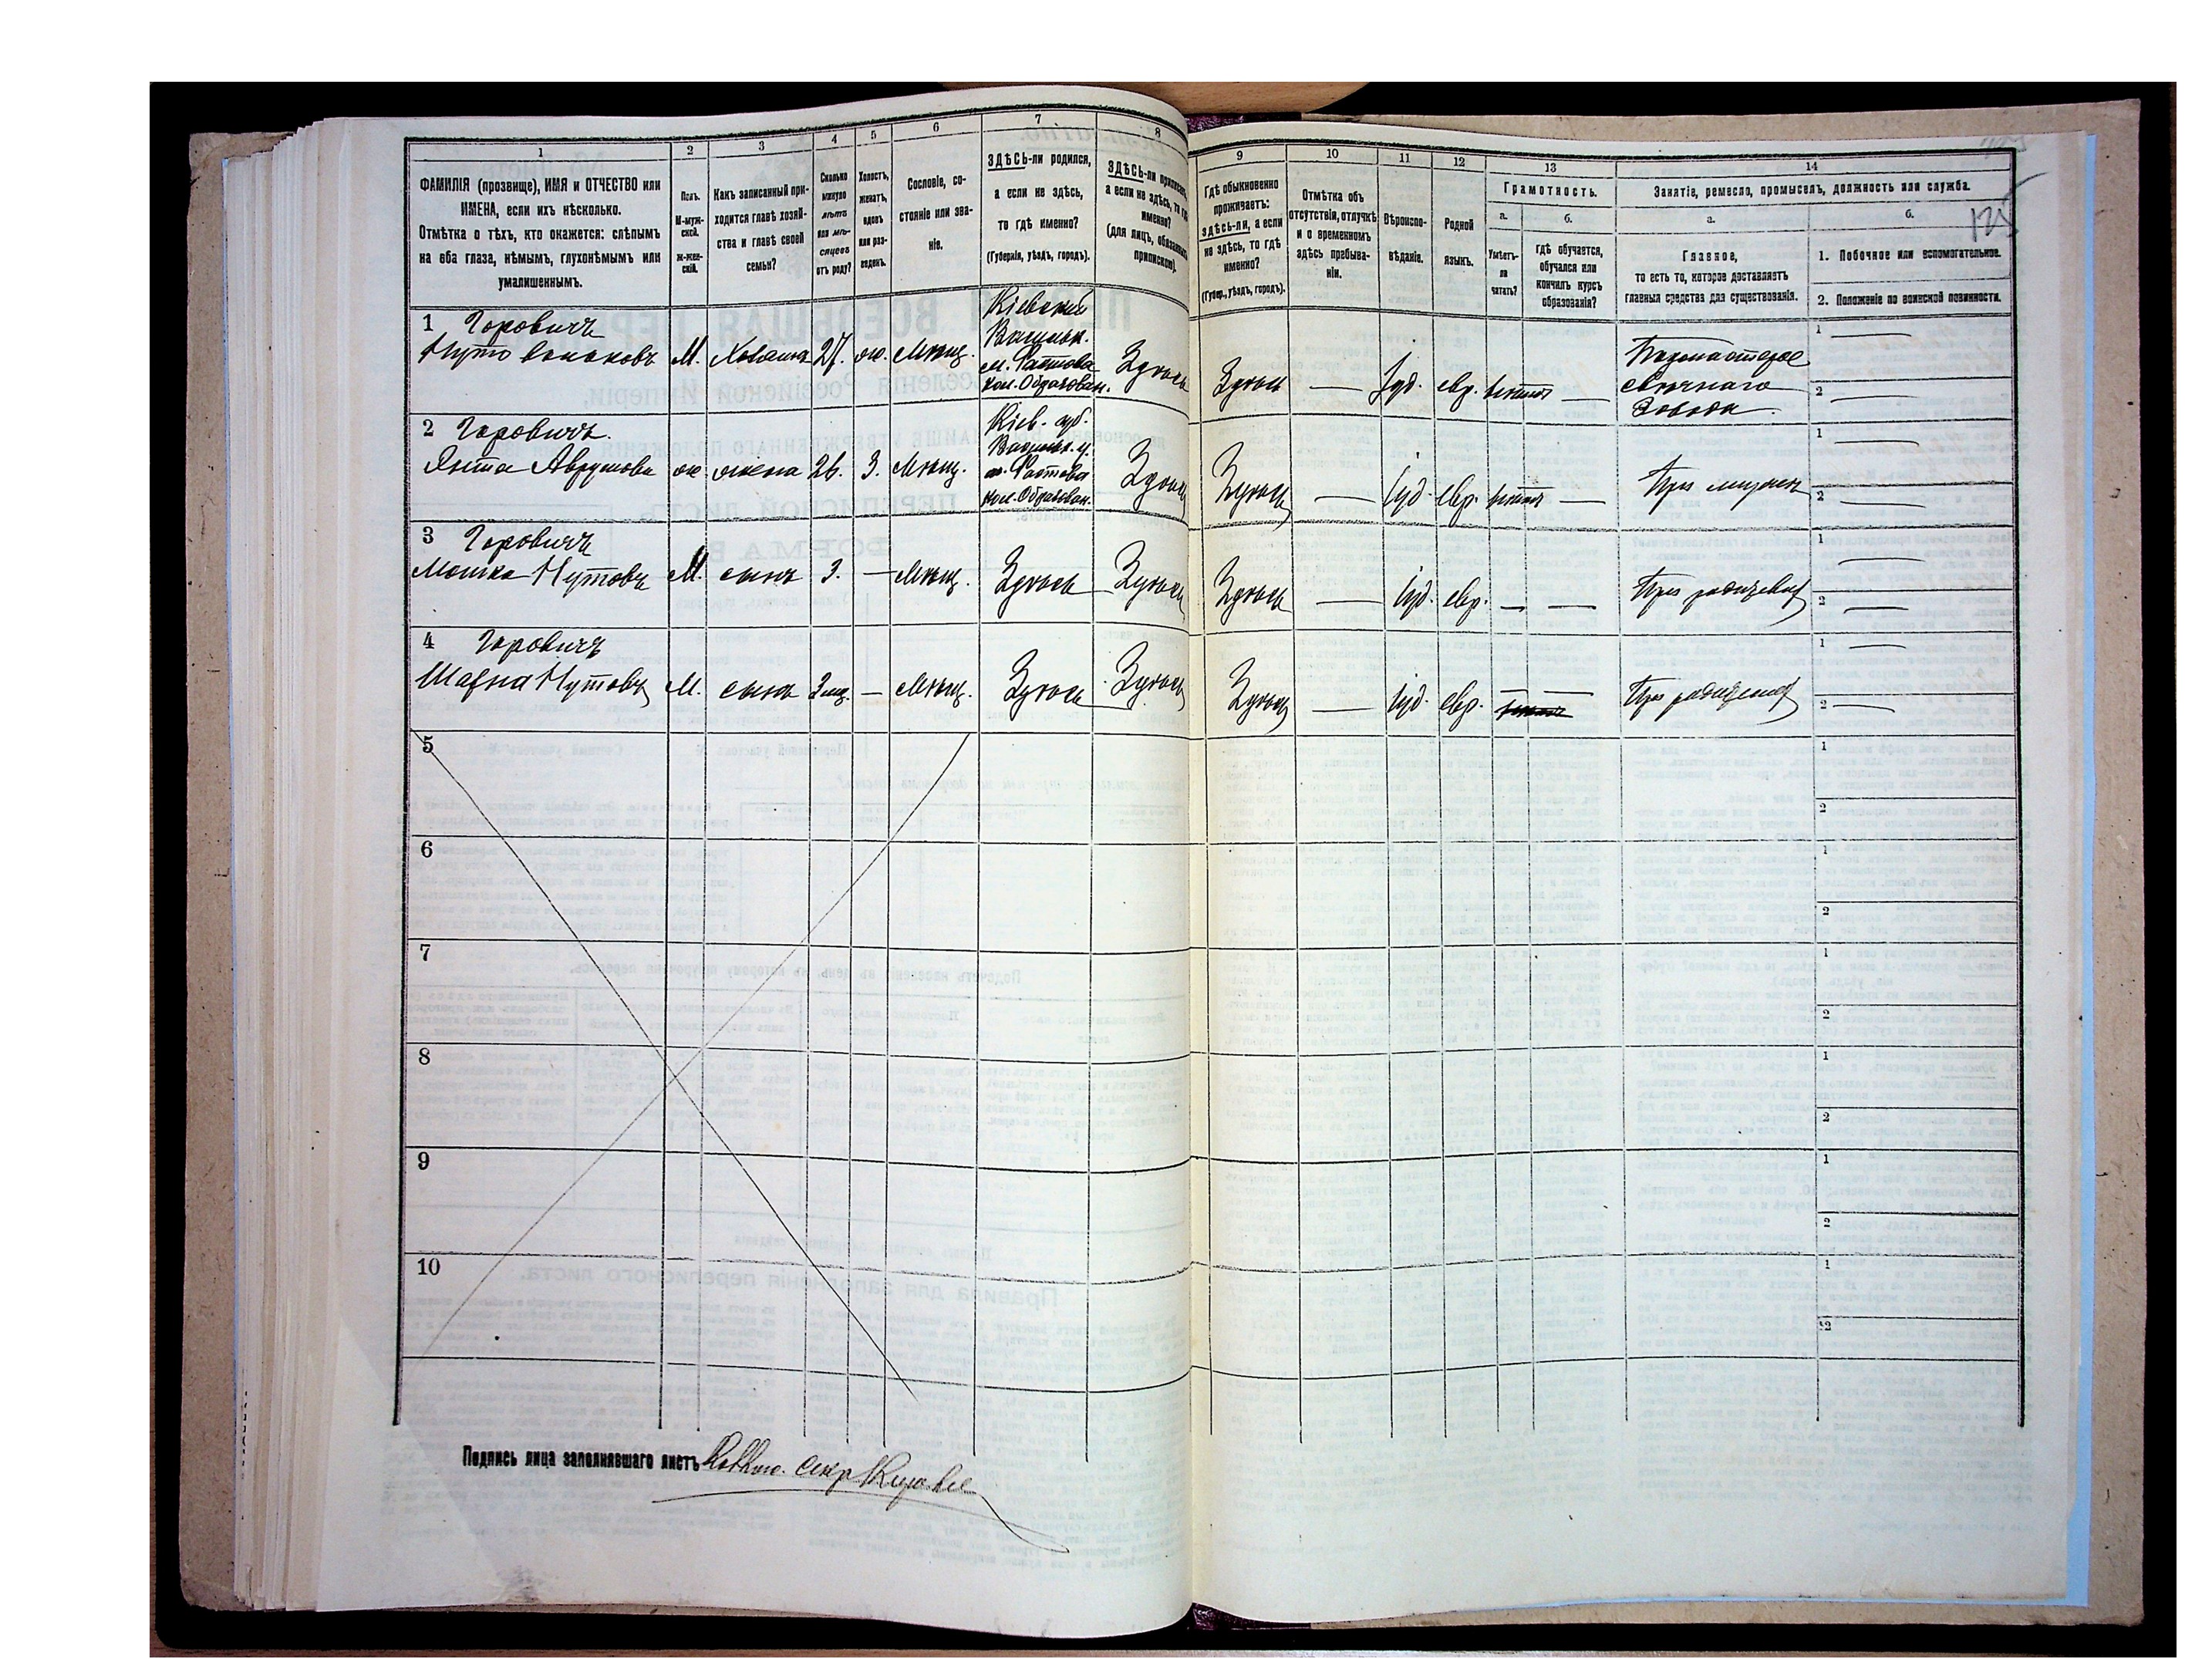 1
2
3
4
5
6
7
8
ФАМИЛІЯ (прозвище), ИМЯ и ОТЧЕСТВО или
ИМЕНА, если ихъ нѣсколько.
Отмѣтка о тѣхъ, кто окажется: слѣпымъ
на оба глаза, нѣмымъ, глухонѣмымъ или
умалишеннымъ.
Полъ.
М-муж-
ской.
Ж-жен-
скій.
Какъ записанный при-
ходится главѣ хозяй-
ства и главѣ своей
семьи?
Сколько
минуло
лѣтъ
или мѣ-
сяцевъ
отъ роду?
Холостъ,
женатъ,
вдовъ
или раз-
веденъ.
Сословіе, со-
стояніе или зва-
ніе.
ЗДѢСЬ-ли родился,
а если не здѣсь,
то гдѣ именно?
(Губернія, уѣздъ, городъ).
ЗДѢСЬ-ли приписанъ,
а если не здѣсь, то гдѣ
именно?
(для лицъ, обязанныхъ
припискою).
9
10
11
12
13
14
Гдѣ обыкновенно
проживаетъ:
здѣсь-ли, а если
не здѣсь, то гдѣ
именно?
(Губер., уѣздъ, городъ).
Отмѣтка объ
отсутствіи, отлучкѣ
и о временномъ
здѣсь пребыва-
ніи.
Вѣроиспо-
вѣданіе.
Родной
языкъ.
Грамотность.
а.
б.
Умѣетъ-
ли
читать?
гдѣ обучается,
обучался или
кончилъ курсъ
образованія?
Занятіе, ремесло, промыселъ, должность или служба.
а.
б.
Главное,
то есть то, которое доставляетъ
главныя средства для существованія.
1. Побочное или вспомогательное.
2. Положеніе по воинской повинности.
125
1 Горовичъ
М. Хозяинъ 27. ж. Мѣщ. Кіевской
Васильк.
м. Фастова
кол. Образован.
Здѣсь Здѣсь — Іуд. евр.
свѣчнаго
завода.
1 —
2 —
2 Горовичъ.
ж. жена 26. З. Мѣщ. Кіев. губ.
Васильк. у.
м. Фастова
кол. Образован.
Здѣсь Здѣсь — Іуд. евр. — При мужѣ
1 —
2 —
3 Горовичъ
Мошко Нутовъ М. сынъ 3. — Мѣщ. Здѣсь Здѣсь Здѣсь — Іуд. евр. — — При родителяхъ
1 —
2 —
4 Горовичъ
М. сынъ 3 мц. — Мѣщ. Здѣсь Здѣсь Здѣсь — Іуд. евр. — — При родителяхъ
1 —
2 —
5
1
2
6
1
2
7
1
2
8
1
2
9
1
2
10
1
2
Подпись лица заполнявшаго листъ